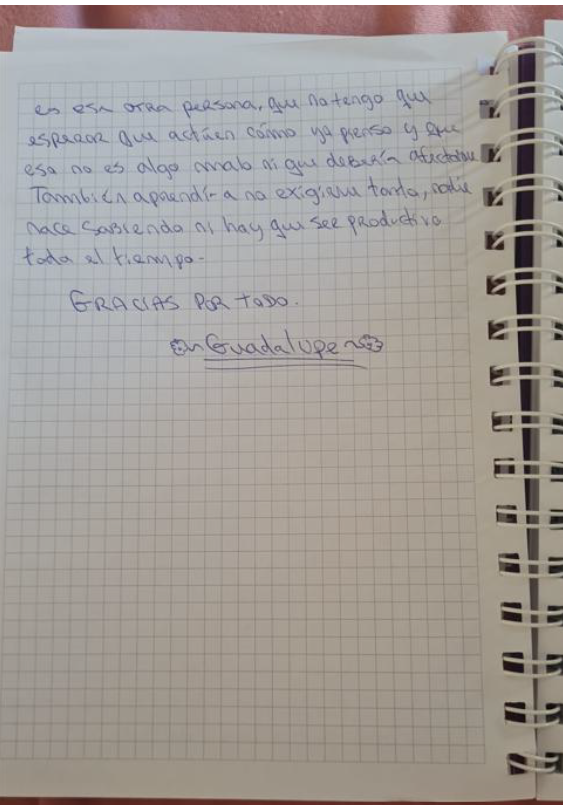 es esa otra persona, que no tengo que
esperar que actúen cómo yo pienso y que
eso no es algo malo ni que debería afectarme
También aprendí a no exigirme tanto, nadie
nace sabiendo ni hay que ser productivo
todo el tiempo-
GRACIAS POR TODO.
Guadalupe